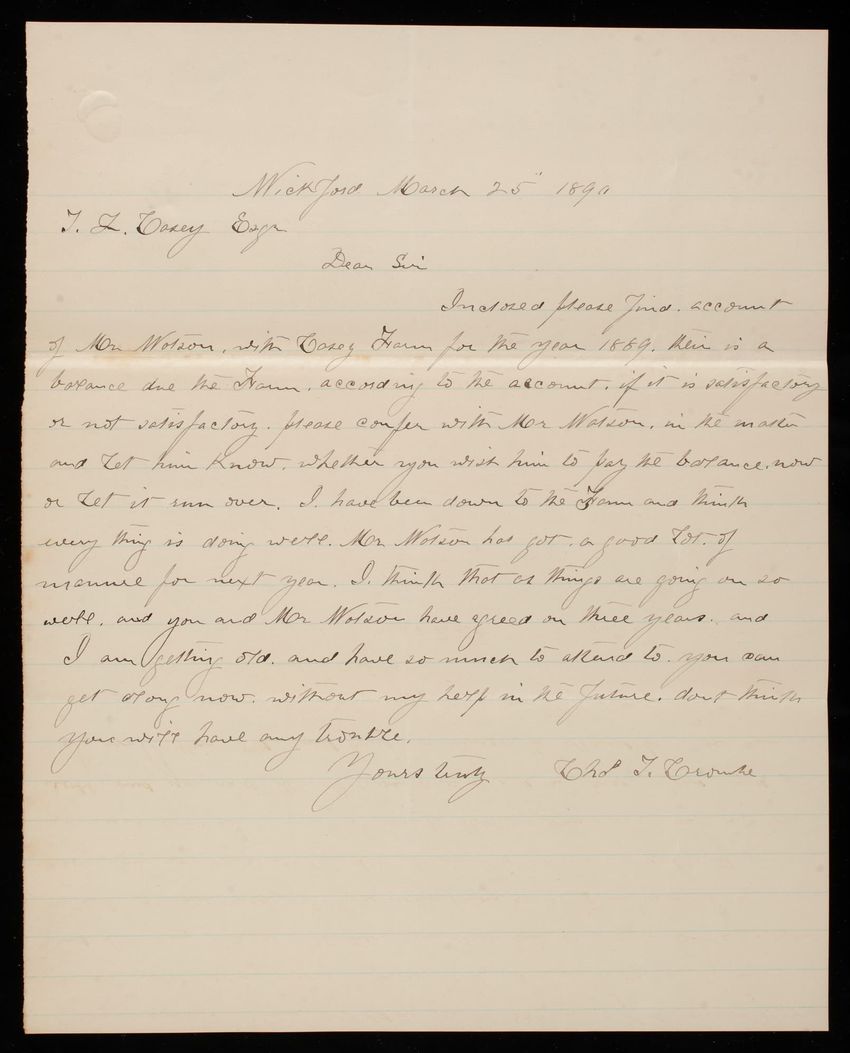 Wickford March 25" 1890
T. L. Casey Esqr
Dear Sir
Inclosed please find. account
of Mr Watson. with Casey Farm for the year 1889. their is a
balance due the Farm. according to the account. if it is satisfactory
or not satisfactory. please confer with Mr Watson. in the matter
and Let him Know. whether you wish him to pay the balance. now
or Let it run over. I. have been down to the Farm and think
every thing is doing well. Mr Watson has got. a good Lot. of
manure for next year. I. think that as things are going on so
well. and you and Mr Watson have agreed on three years. and
I am getting old. and have so much to attend to. you can
get along now. without my help in the future. dont think
you will have any trouble.
Yours truly Chs T.